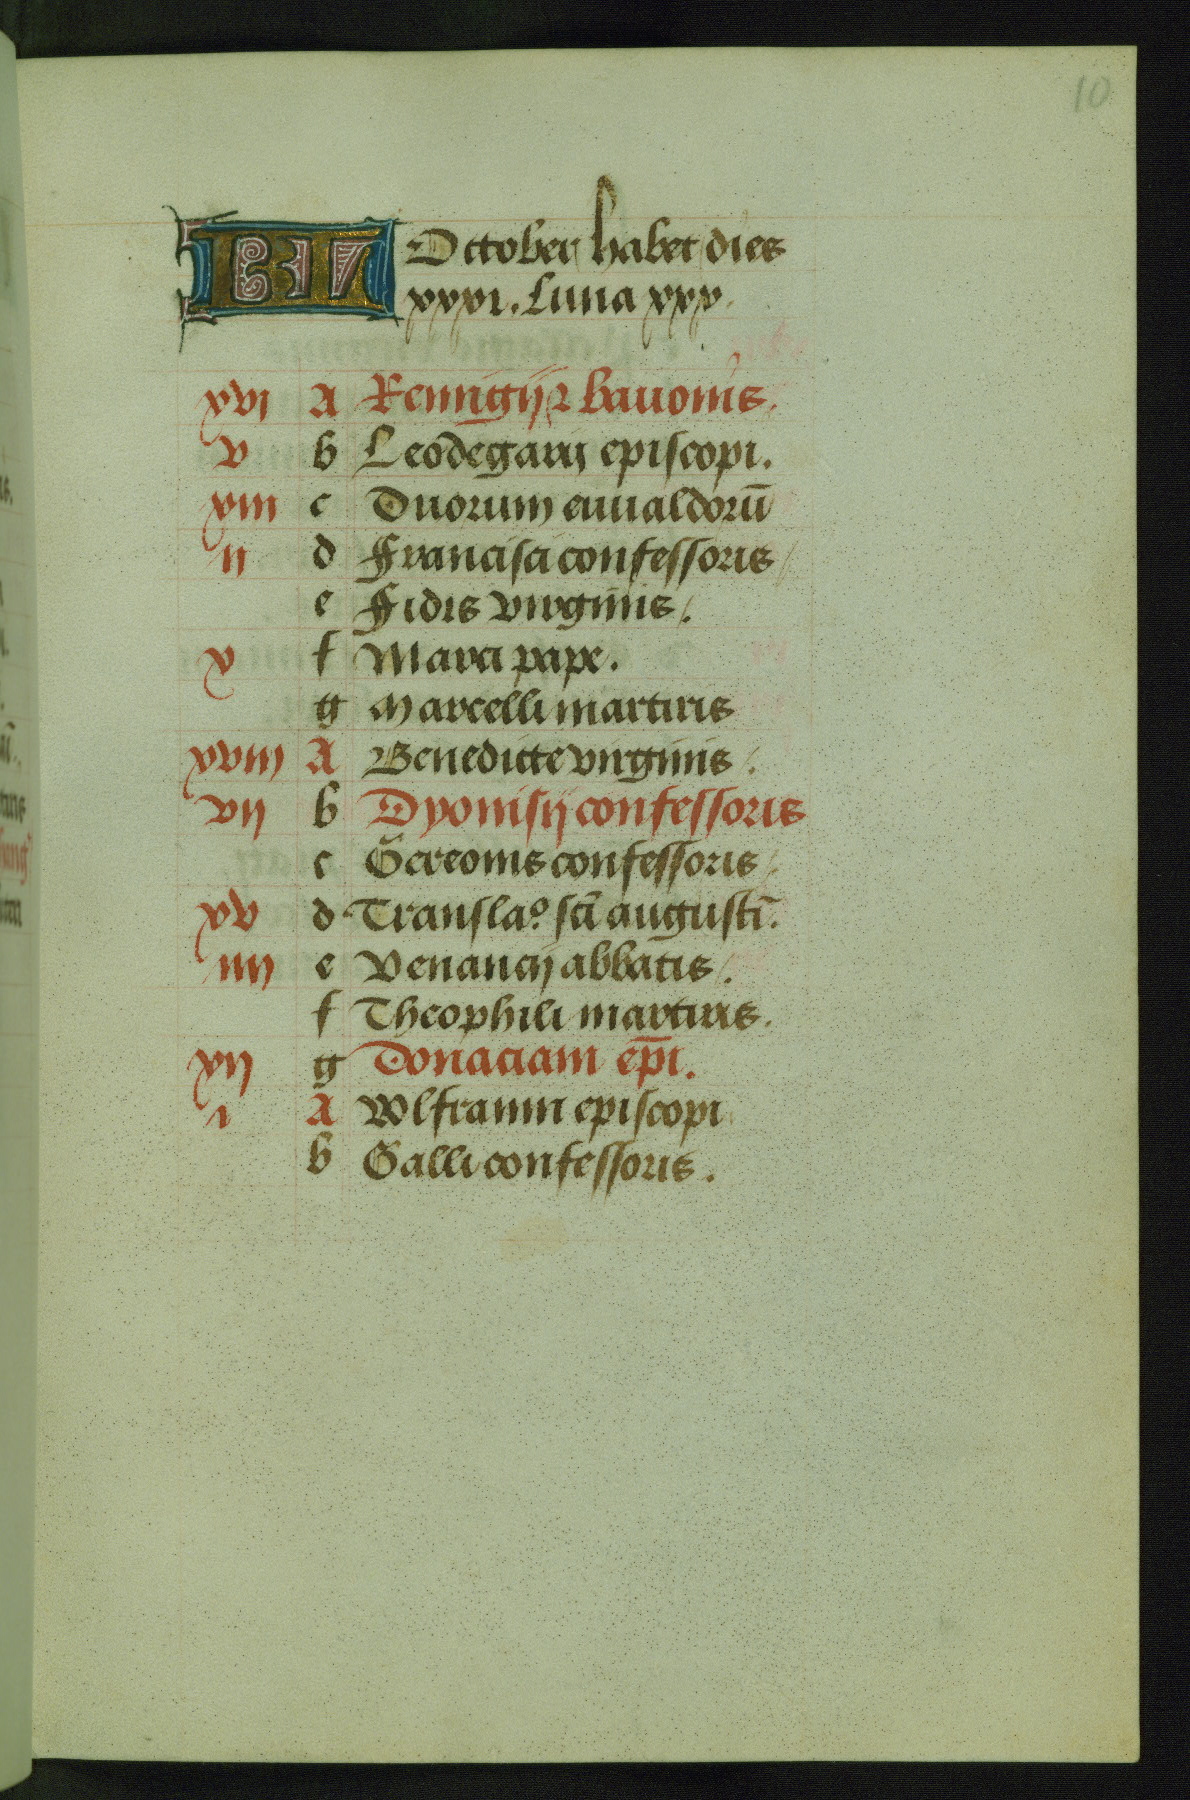 10
KL October habet dies
xxxi. Luna xxx.
xvi A Remigij ꝛ bavonis.
v b Leodegarij episcopi.
xiii c Duorum euualdorū
ii d Francisci confessoris
e Fidis virginis.
x f Marci pape.
g Marcelli martiris
xviii A Benedicte virginis.
vij b Dyonisij confessoris
c Gereonis confessoris
xv d Translaº. sci augusti.
iiij e Venancij abbatis.
f Theophili martiris.
xij g Donaciani epi.
i A Wlframni episcopi
b Galli confessoris.